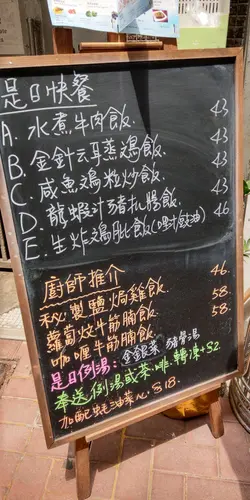 是日快餐
A. 水煮牛肉飯. 43
B. 金針云耳蒸鸡飯. 43
C. 咸魚鸡粒炒飯. 43
D. 龍蝦汁猪扒腸飯. 43
E. 生炸鸡肶飯(豉油) 43
廚師推介 46.
秘製鹽焗雞飯. 58.
蘿蔔炆牛筋腩飯. 58.
咖喱牛筋腩飯.
是日例湯: 金銀菜 猪骨湯
奉送例湯或茶啡. 轉凍+$2.
加配蚝油菜心 $18.